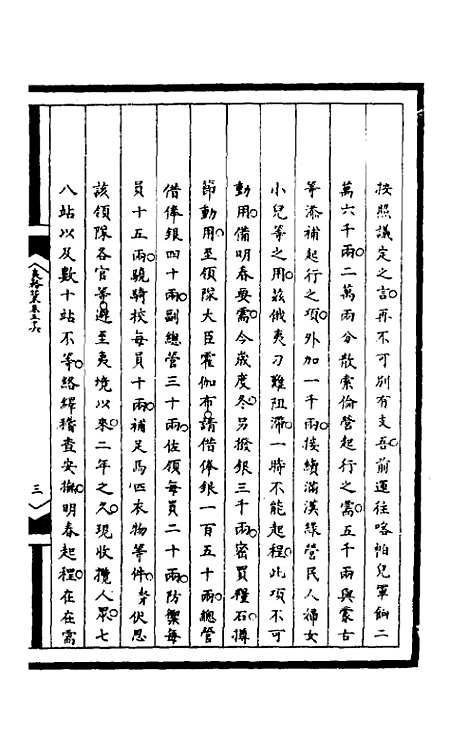 按照議定之言。再不可別有支吾。前運往喀帕兒軍餉二
萬六千兩。二萬兩分散索倫營起行之需。五千兩與蒙古
等添補起行之項。外加一千兩。接續滿漢綠營民人婦女
小兒等之用。茲俄夷刁難阻滯。一時不能起程。此項不可
動用。備明春要需。今歲度冬。另撥銀三千兩。密買糧石。撙
節動用。至領隊大臣霍伽布。請借俸銀一百五十兩。總管
借俸銀四十兩。副總管三十兩。佐領每員二十兩。防禦每
員十五兩。驍騎校每員十兩。補足馬匹衣物等件。奴才伏思
該領隊各官等。避至夷境以來。二年之久。現收攬人眾。七
八站以及數十站不等。絡繹稽查安撫。明春起程。在在需
三